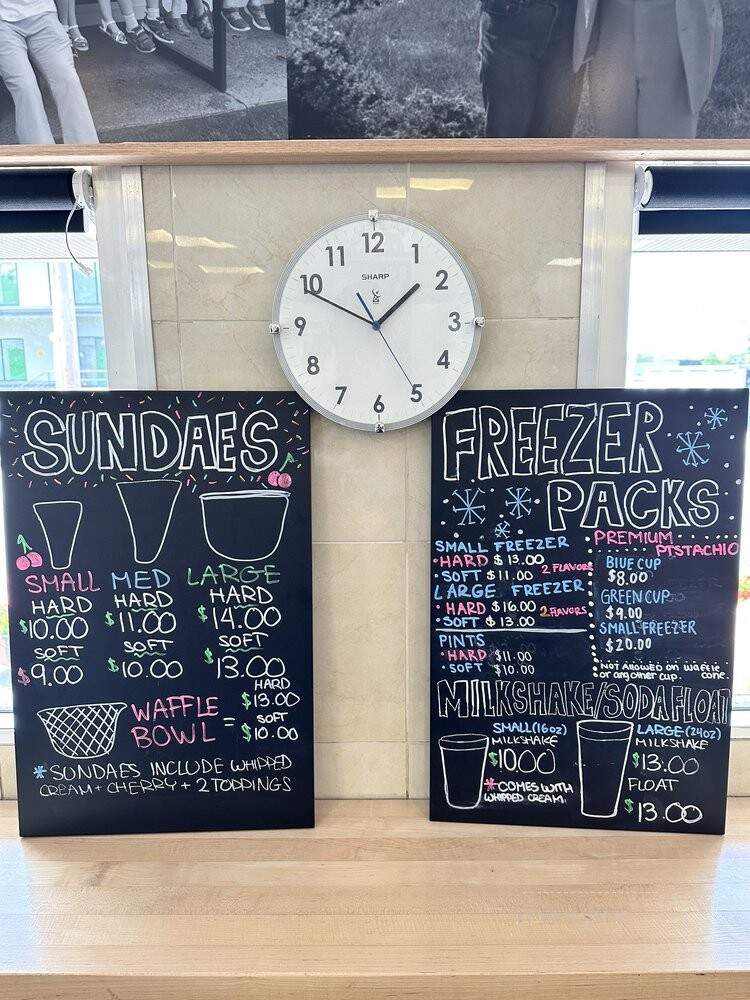 12
11 1
SHARP
10 2
9 3
8 4
7 5
6
SUNDAES
SMALL MED LARGE
HARD HARD HARD
$10.00 $11.00 $14.00
SOFT SOFT SOFT
$9.00 $10.00 $13.00
WAFFLE BOWL =
HARD
$13.00
SOFT
$10.00
*SUNDAES INCLUDE WHIPPED
CREAM + CHERRY + 2 TOPPINGS
FREEZER
PACKS
SMALL FREEZER
•HARD $13.00 2 FLAVORS
•SOFT $11.00
LARGE FREEZER
•HARD $16.00 2 FLAVORS
•SOFT $13.00
PINTS
•HARD $11.00
•SOFT $10.00
PREMIUM
PISTACHIO
BLUE CUP
$8.00
GREEN CUP
$9.00
SMALL FREEZER
$20.00
NOT ALLOWED ON WAFFLE CONE
or any other cup.
MILKSHAKE/SODA FLOAT
SMALL (16oz)
MILKSHAKE
$10.00
*COMES WITH
WHIPPED CREAM.
LARGE (24oz)
MILKSHAKE
$13.00
FLOAT
$13.00